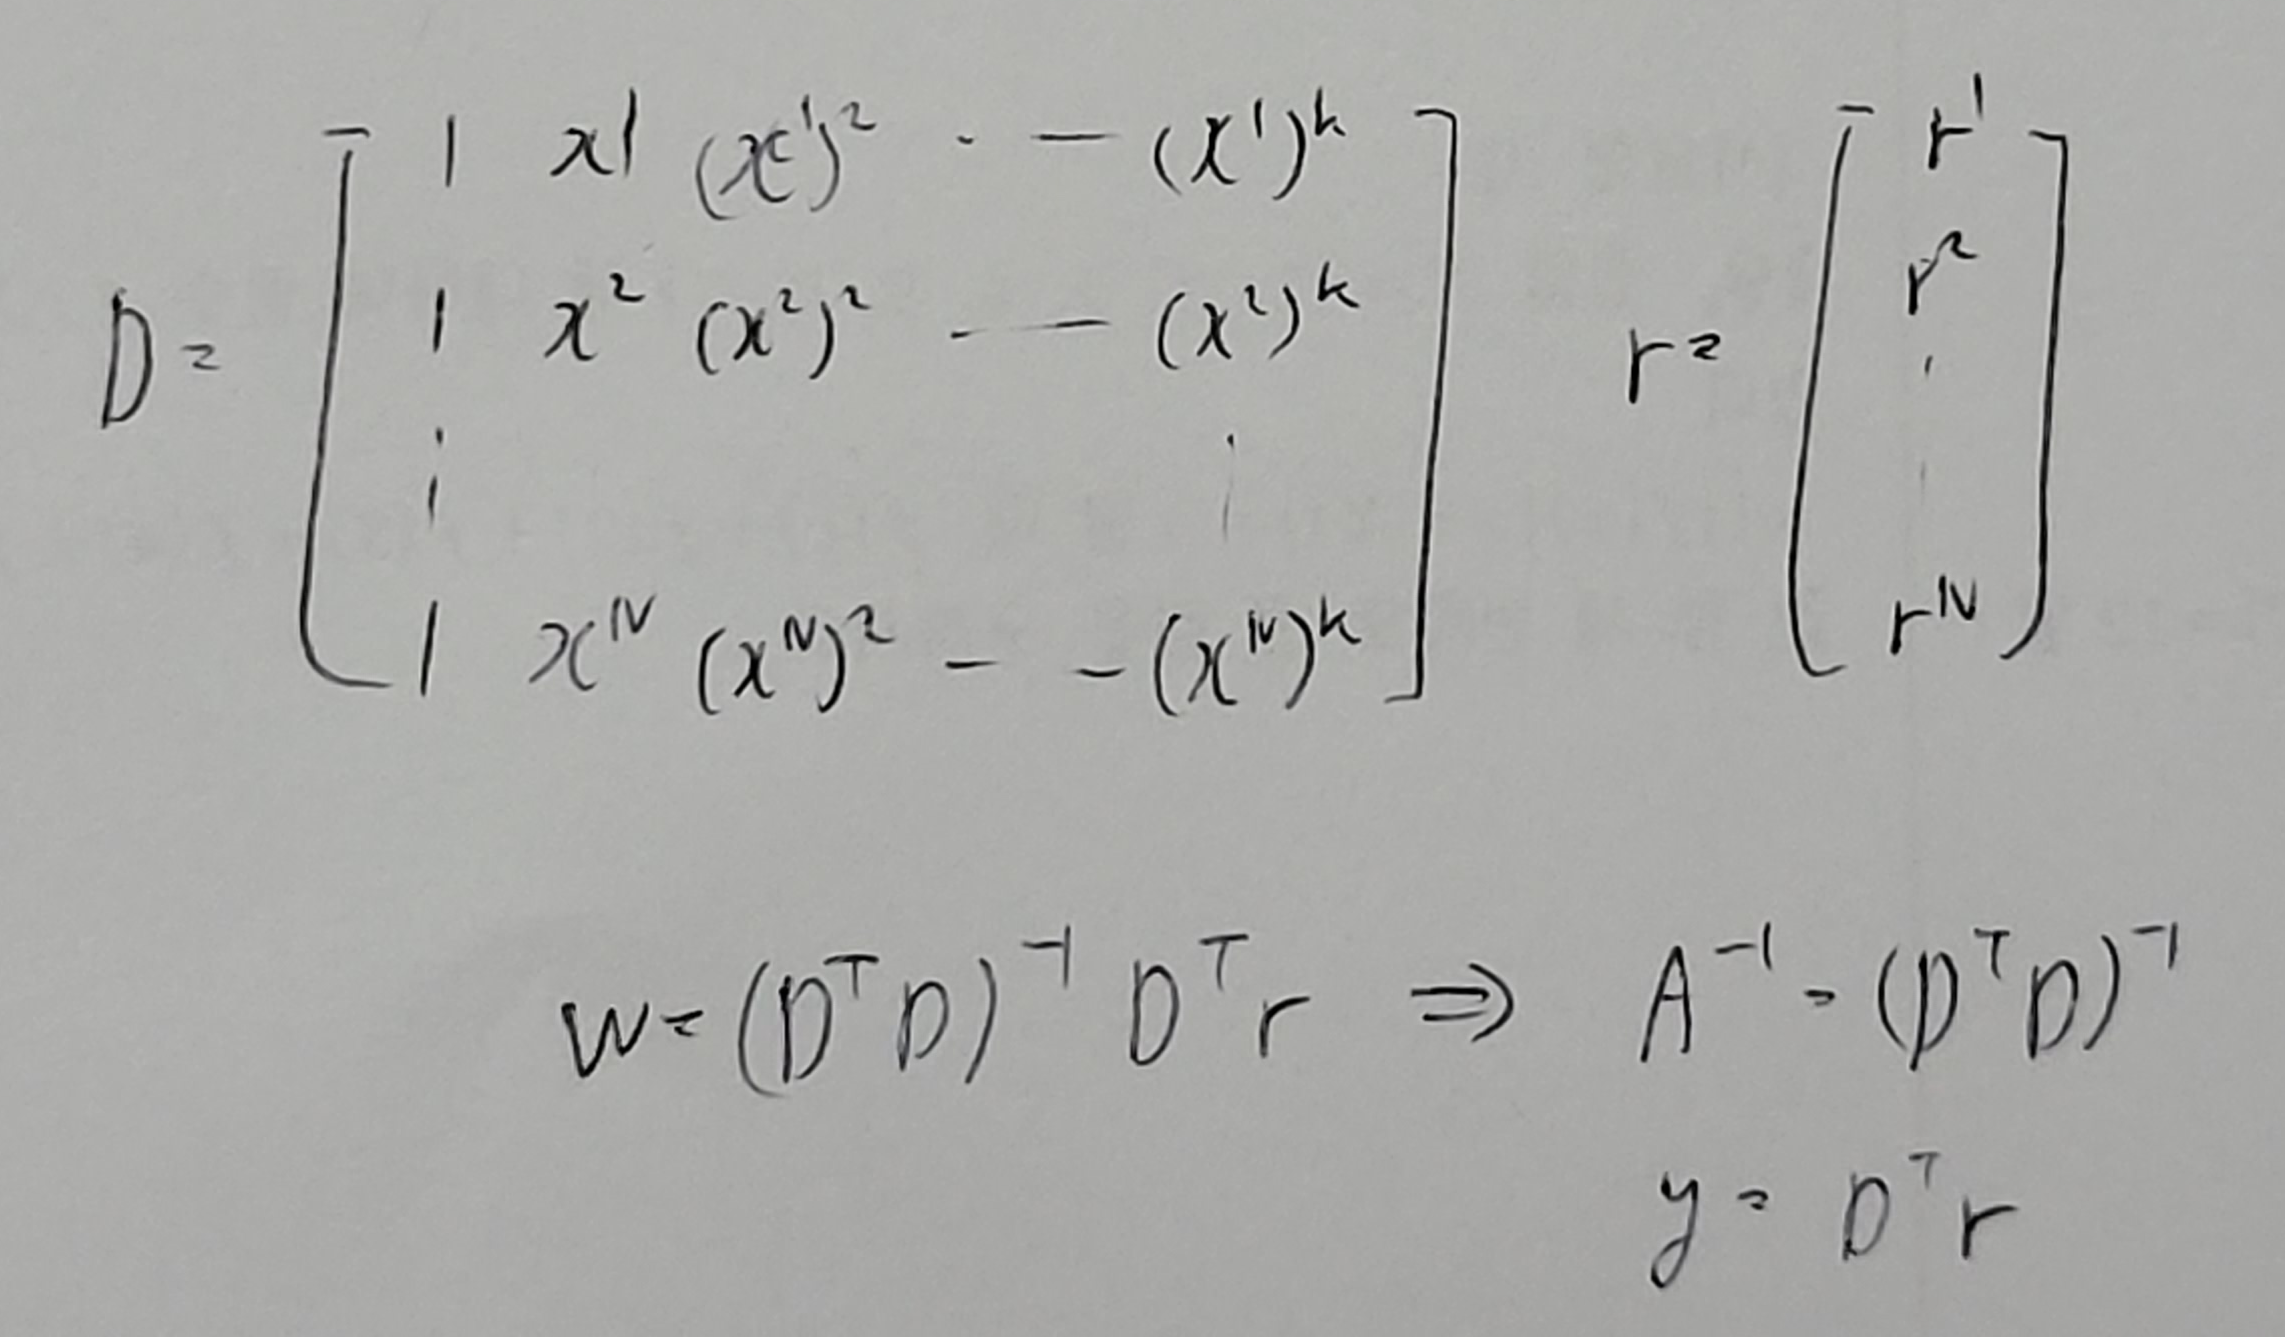 1 x¹ (x¹)² · — (x¹)ᵏ
1 x² (x²)² · — (x²)ᵏ
D =
⋮ ⋮
1 xᴺ (xᴺ)² - - (xᴺ)ᵏ
r¹
r²
r =
⋮
rᴺ
w = (DᵀD)⁻¹ Dᵀr ⇒ A⁻¹ = (DᵀD)⁻¹
y = Dᵀr